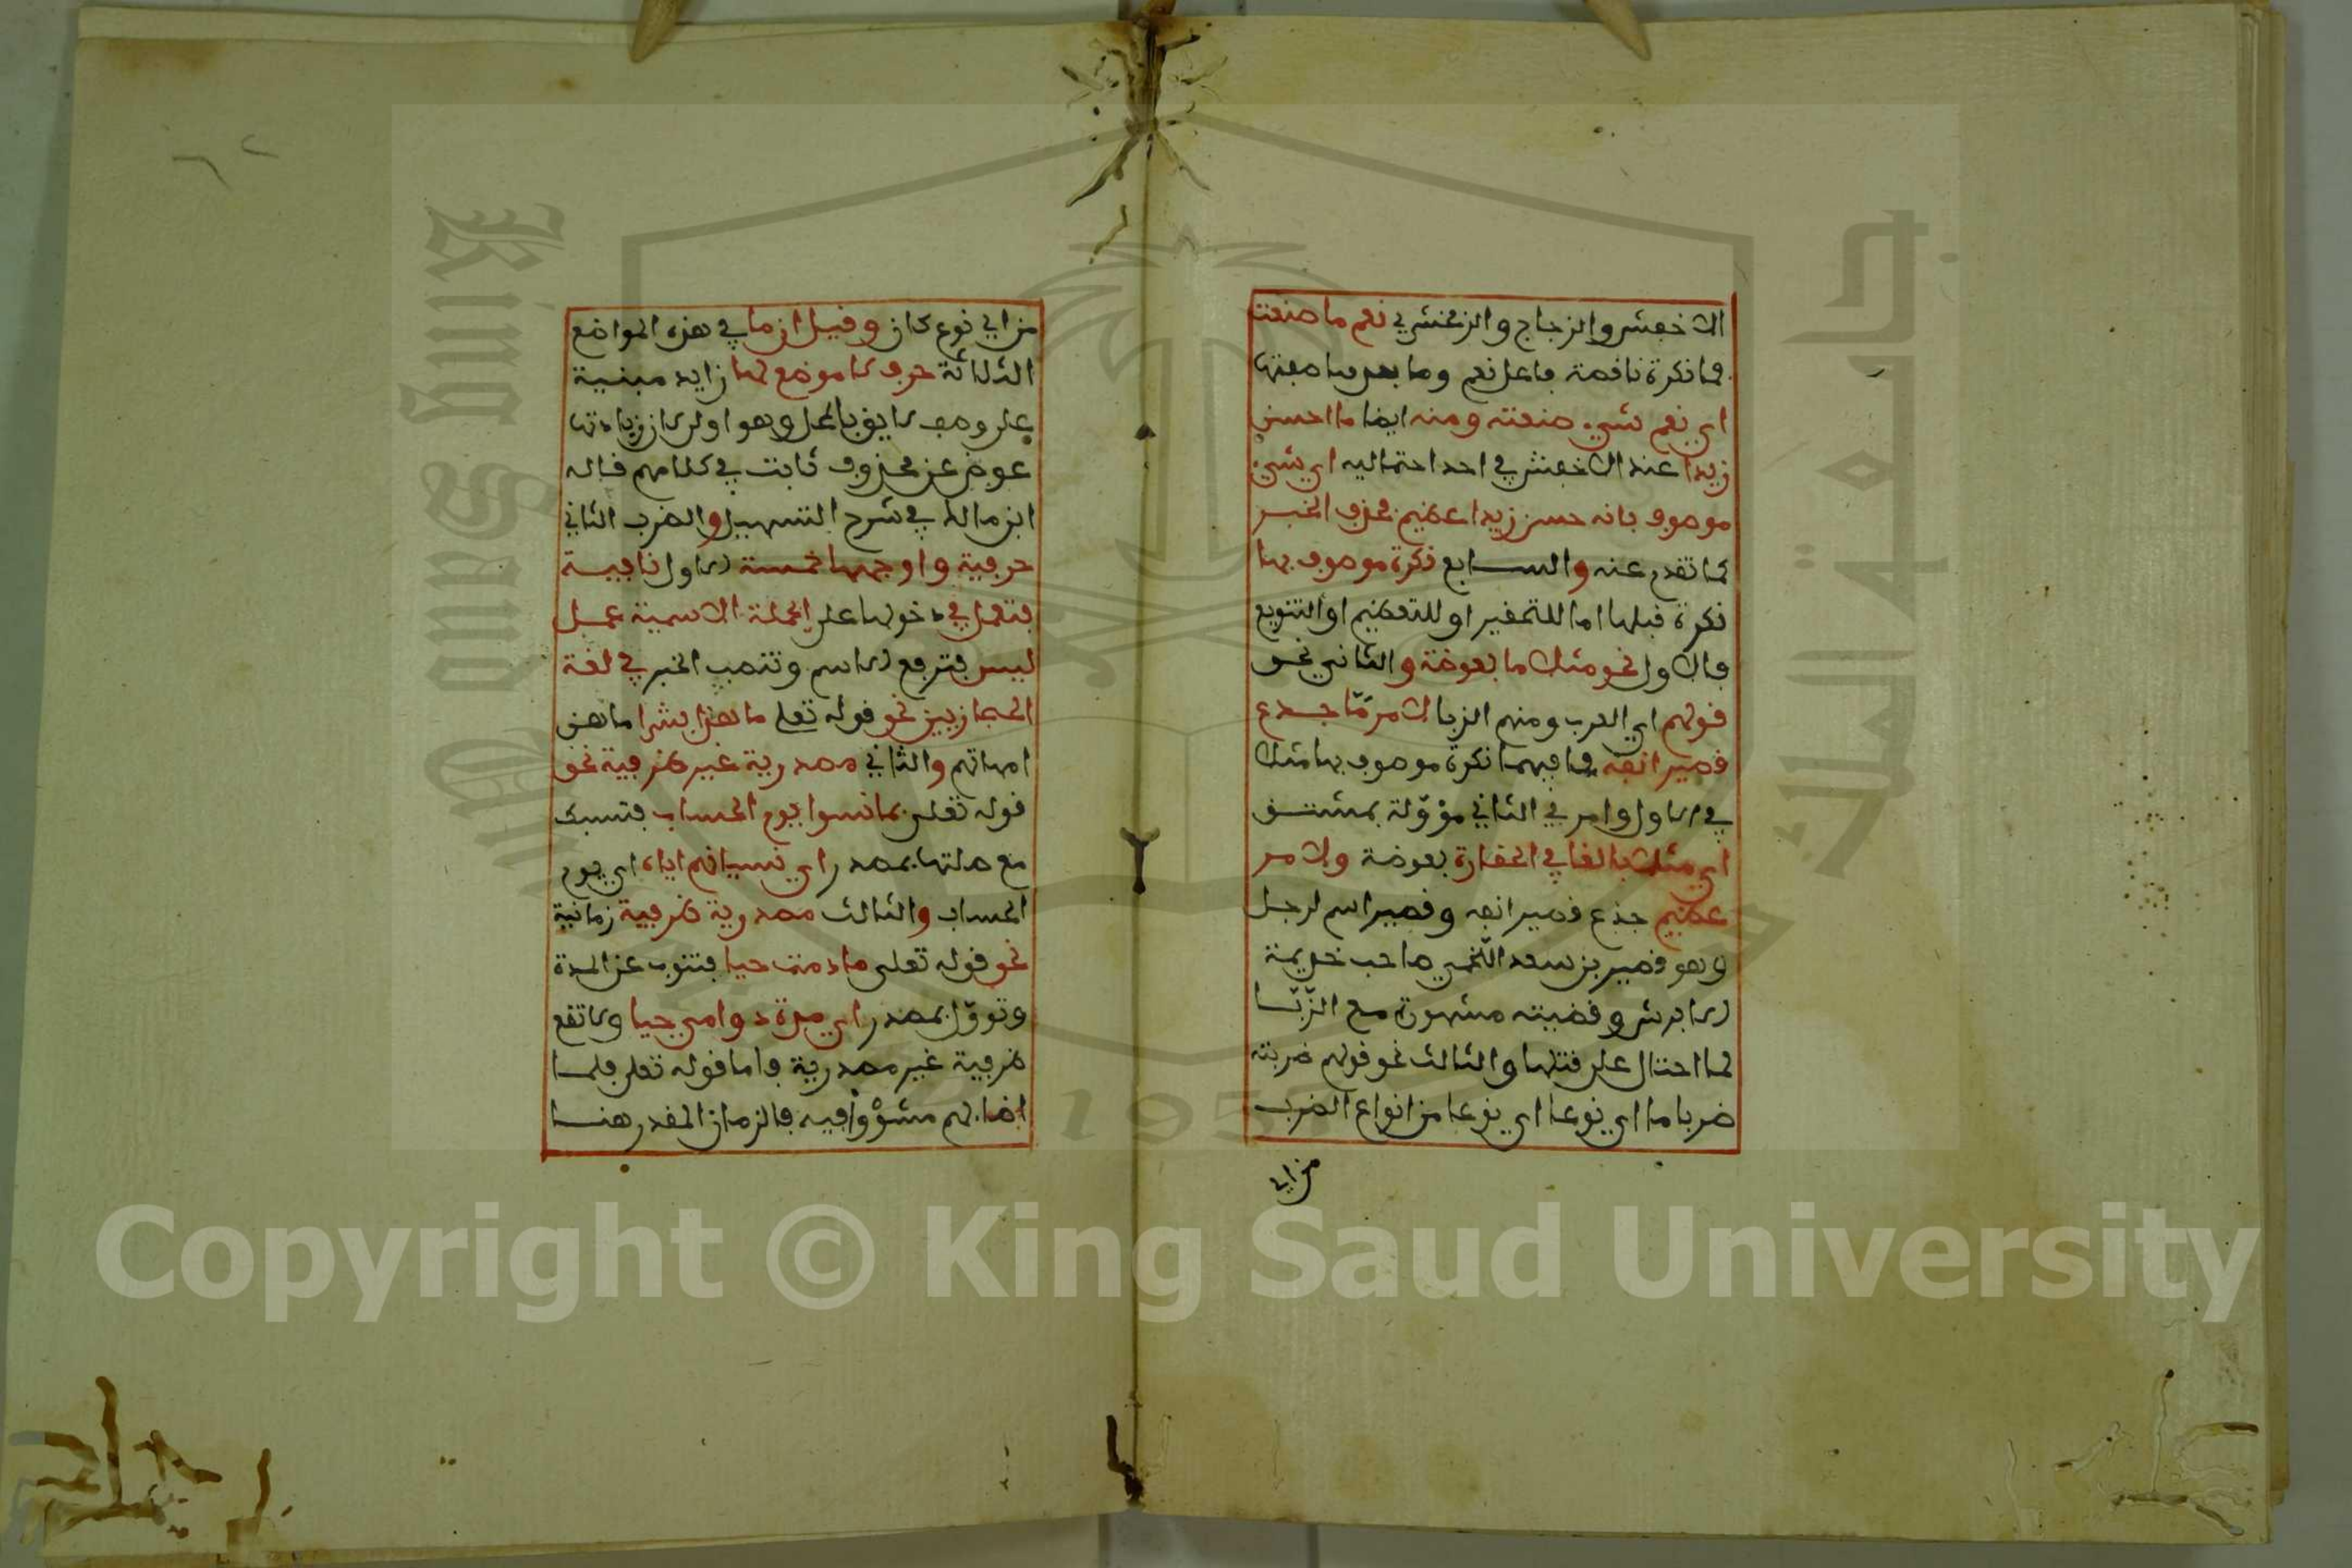 الاخفش والزجاج والزمخشري نعم ما صنعت
فما نكرة ناقصة فاعل نعم وما بعدها صفتها
اي نعم شيء صنعته ومنه ايضا ما احسن
زيدا عند الاخفش في احد احتماليه اي شيء
موصوف بانه حسن زيدا عظيم فحذف الخبر
كما تقدم عنه والسابع نكرة موصوف بها
نكرة قبلها اما للتحقير او للتعظيم او التنويع
فالاول نحو مثلا ما بعوضة والثاني نحو
قولهم اي العرب ومنهم الزبا لامر مّا جدع
قصير انفه فما فيهما نكرة موصوف بها مثلا
في الاول وامر في الثاني مؤوّلة بمشتق
اي مثلا بالغا في الحقارة بعوضة ولامر
عظيم جذع قصير انفه وقصير اسم لرجل
وهو قصير بن سعد اللّخمي صاحب خذيمة
الابرش وقضيته مشهورة مع الزّبّا
لما احتال على قتلها والثالث نحو قولهم ضربته
ضربا ما اي نوعا اي نوعا من انواع الضرب
من اي
من اي نوع كان وقيل ان ما في هذه المواضع
الثلاثة حرف لا موضع لها زايد مبنية
على وصف لايق بالمحل وهو اولى لان زيادتها
عوض عن محذوف ثابت في كلامهم قاله
ابن مالك في شرح التسهيل والضرب الثاني
حرفية واوجهها خمسة الاول نافية
فتعمل في دخولها على الجملة الاسمية عمل
ليس فترفع الاسم وتنصب الخبر في لغة
الحجازيين نحو قوله تعلى ما هذا بشرا ما هن
امهاتهم والثاني مصدرية غير ظرفية نحو
قوله تعلى بما نسوا يوم الحساب فتسبك
مع صلتها بمصدر اي نسيانهم اياه اي يوم
الحساب والثالث مصدرية ظرفية زمانية
نحو قوله تعلى ما دمت حيا فتنوب عن المدة
وتووّل بمصدر اي مدة دوامي حيا ولا تقع
ظرفية غير مصدرية واما قوله تعلى فلما
اضا لهم مشوْا فيه فالزمان المقدر هنا
Copyright © King Saud University
King Saud University
1957